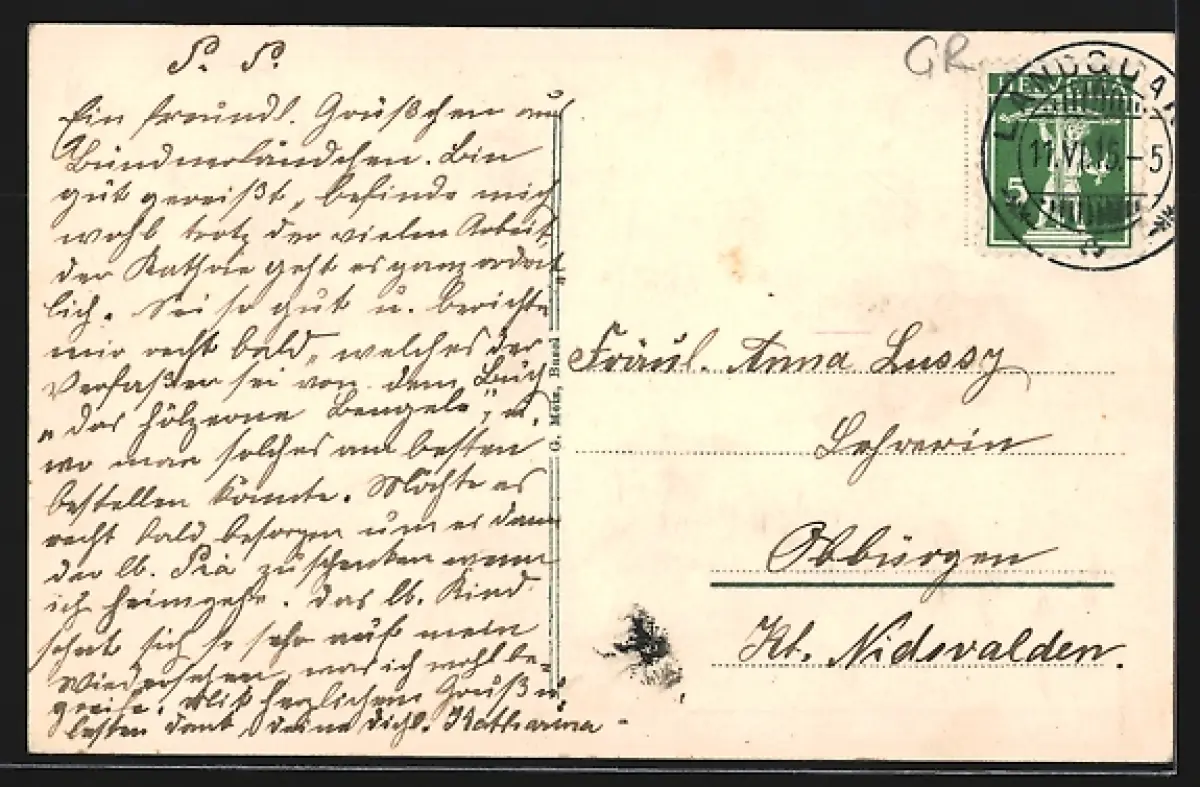 P. P.
Ein freundl. Grüßchen aus
Bündnerländchen. Bin
gut gereißt, befinde mich
wohl trotz der vielen Arbeit,
der Kathrie geht es ganz ordent
lich. Sei so gut u. berichte
mir recht bald, welches der
Verfaßer sei von dem Buch
„das hölzerne Bengele", u.
wo man solches am besten
bestellen könnte. Möchte es
recht bald besorgen um es dann
der lb. Pia zu schenken wenn
ich heimgehe. Das lb. Kind
sehnt sich so sehr auf mein
Wiedersehen, was ich wohl be-
greife. Mit herzlichem Gruß u.
besten Dank, Deine Dichl. Katharina
G. Metz, Basel
GR
HELVETIA
5
LANDQUART
11.VI.15.-5
Fräul. Anna Lussy
Lehrerin
Obbürgen
Kt. Nidwalden.